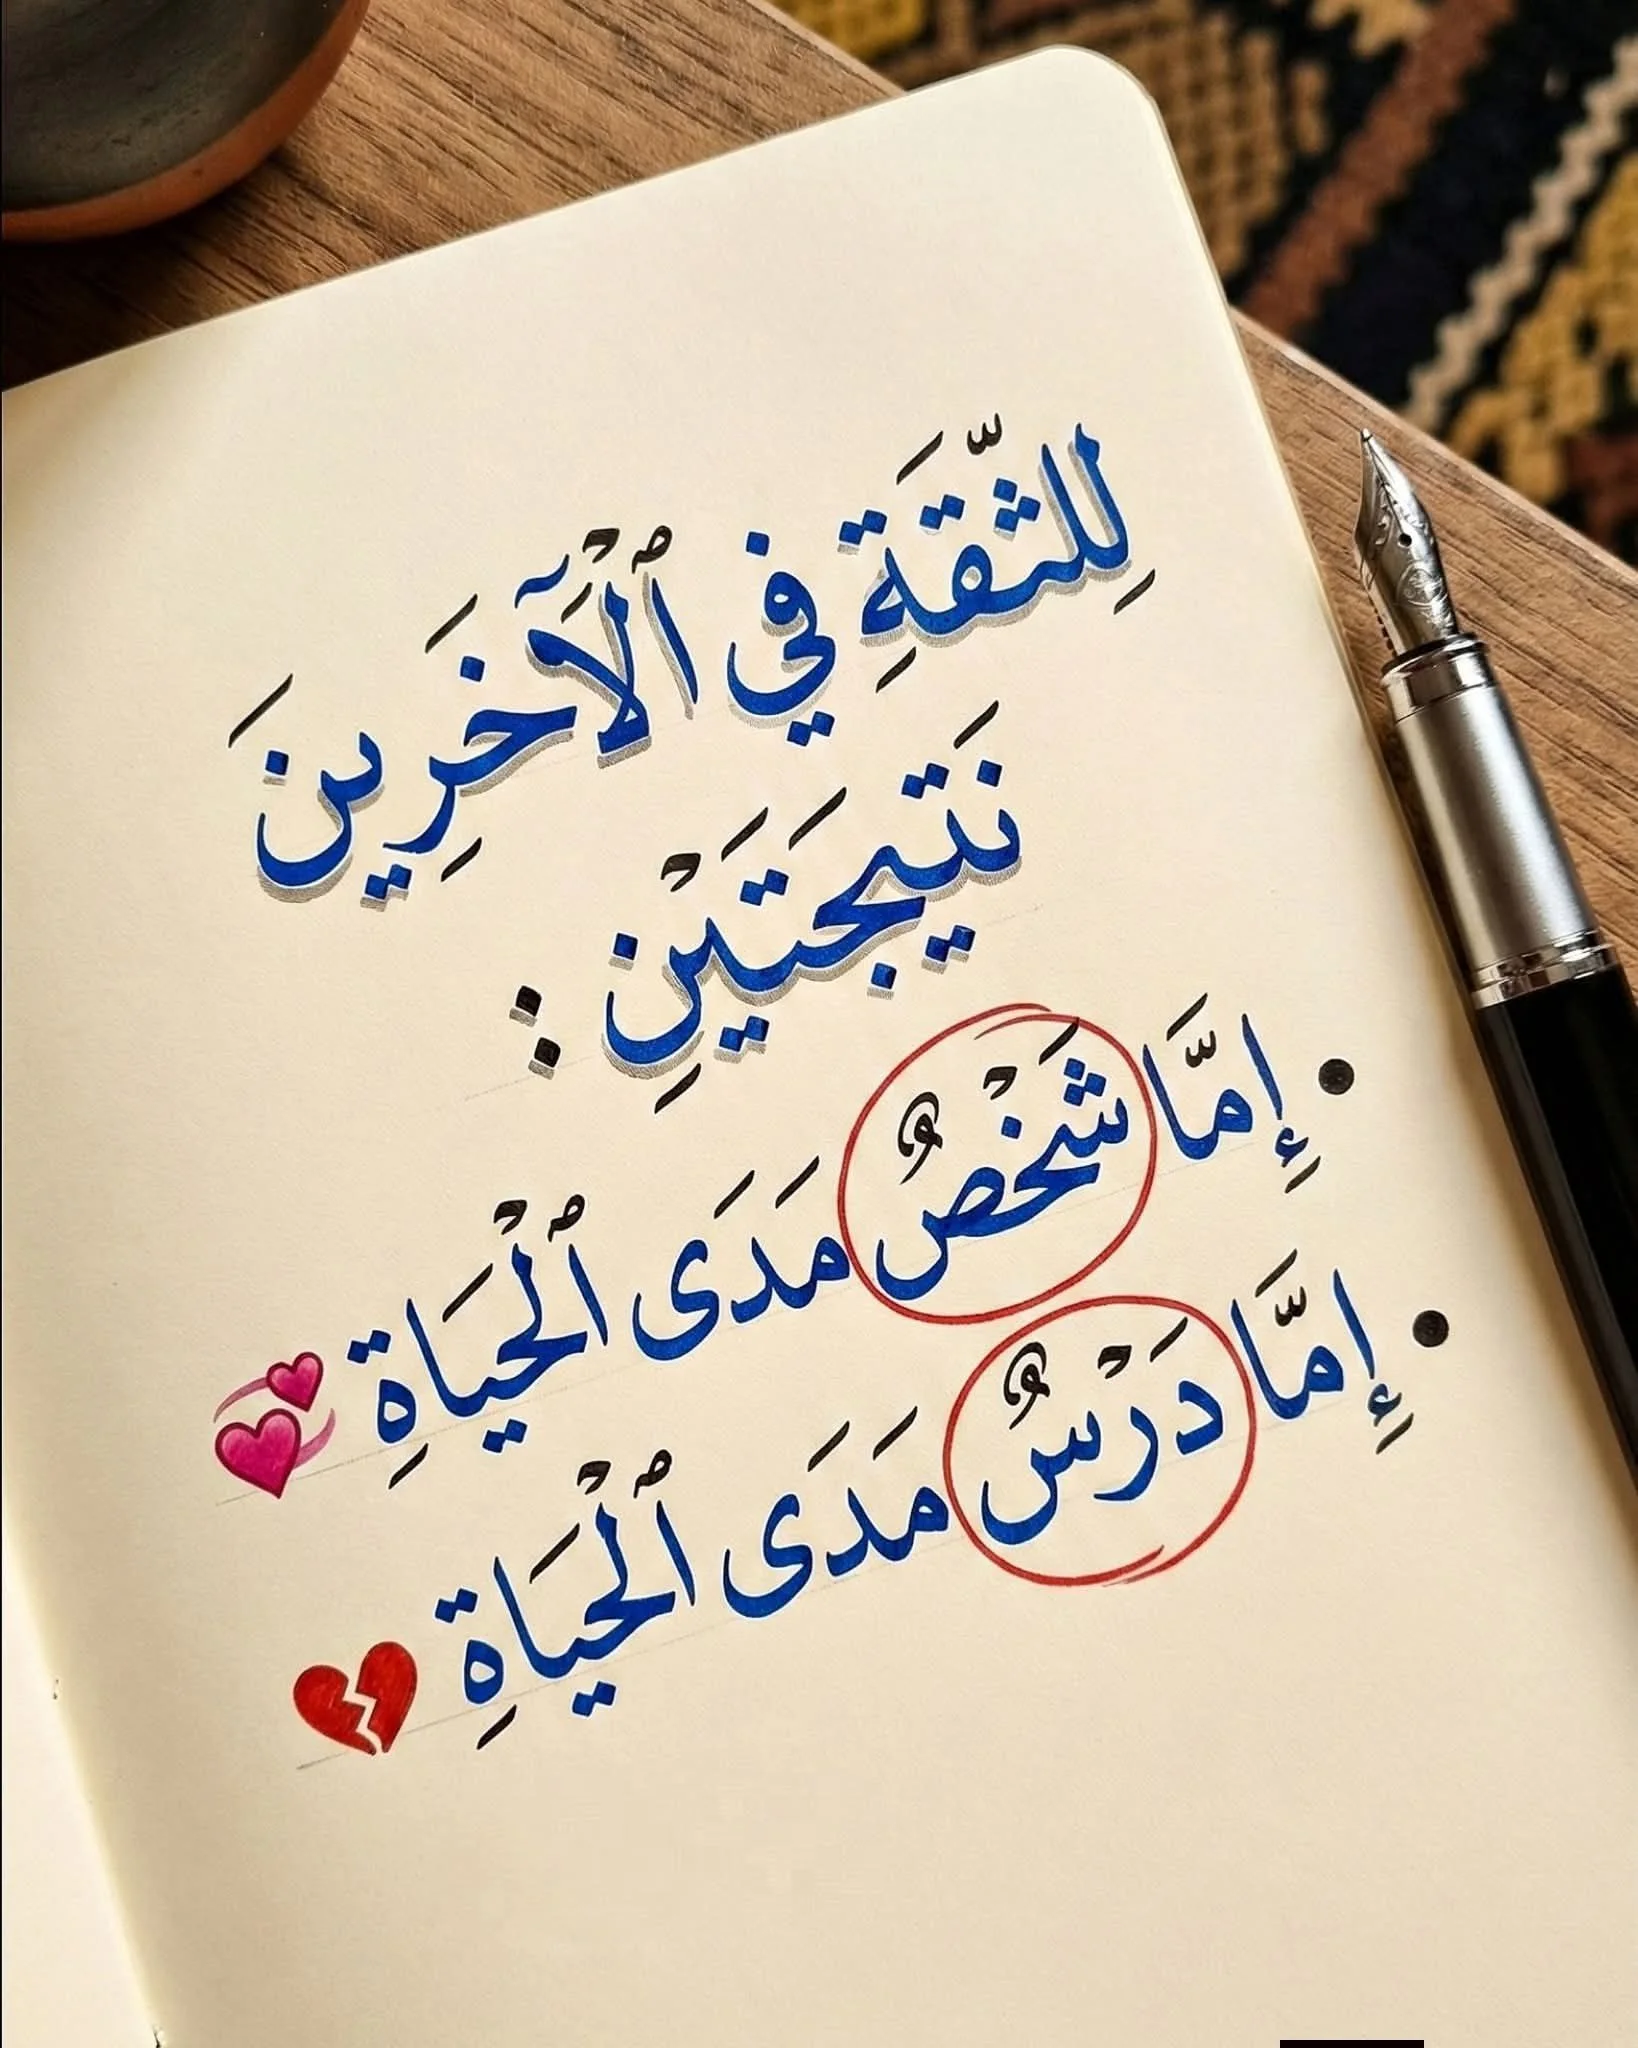 لِلثِّقَةِ فِي ٱلْآخَرِينَ
نَتِيجَتَيْنِ :
• إِمَّا شَخْصٌ مَدَى ٱلْحَيَاةِ 💞
• إِمَّا دَرْسٌ مَدَى ٱلْحَيَاةِ 💔